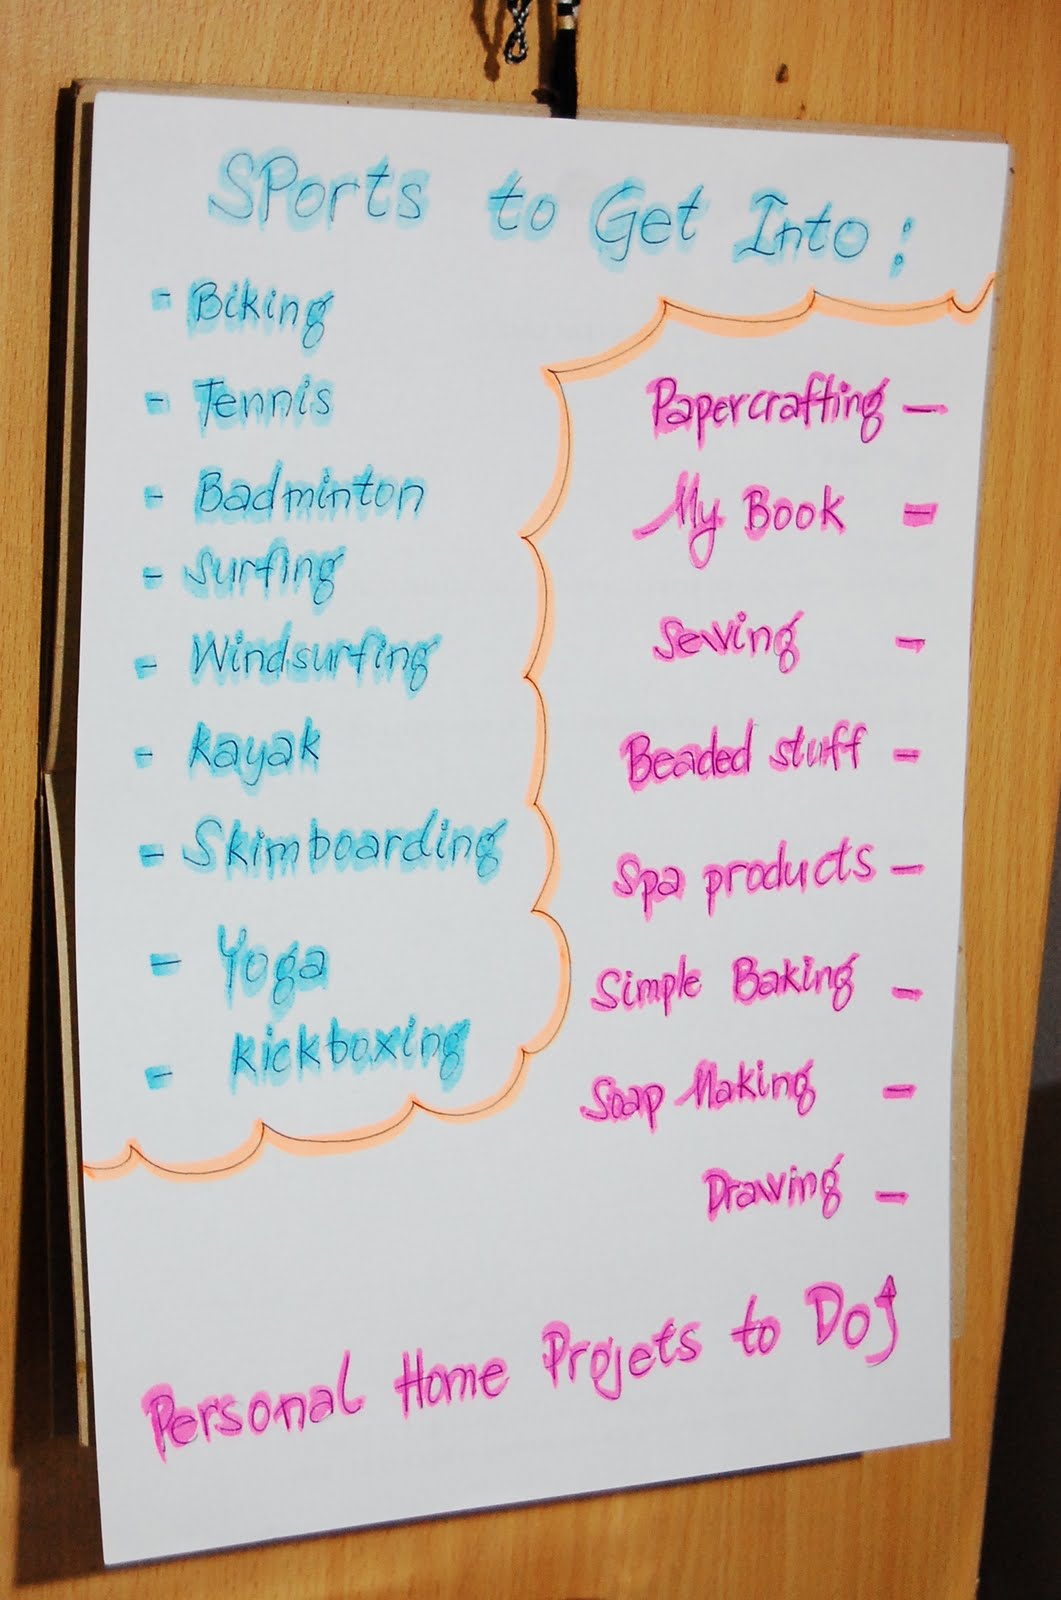 SPorts to Get Into :
- Biking
- Tennis
- Badminton
- Surfing
- Windsurfing
- Kayak
- Skimboarding
- Yoga
- Kickboxing
Papercrafting -
My Book -
Sewing -
Beaded stuff -
Spa products -
Simple Baking -
Soap Making -
Drawing -
Personal Home Projets to Do